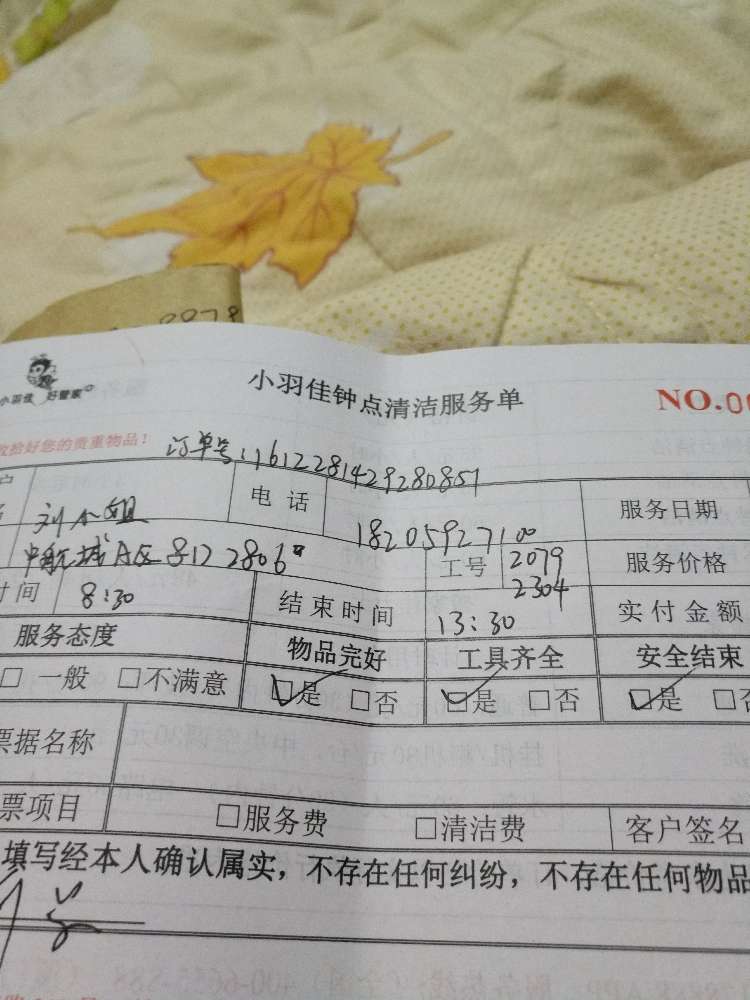 小羽佳 好管家
小羽佳钟点清洁服务单
NO.0
收拾好您的贵重物品！
订单号:161228142928085
户 刘小姐 电话 18205927100 服务日期
中航城A区 2806 工号 2079 2304 服务价格
时间 8:30 结束时间 13:30 实付金额
服务态度 物品完好 工具齐全 安全结束
□一般 □不满意 □是 □否 □是 □否 □是 □否
票据名称
票项目 □服务费 □清洁费 客户签名
填写经本人确认属实，不存在任何纠纷，不存在任何物品